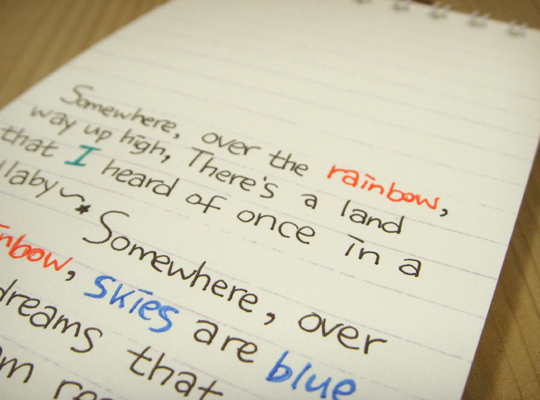 Somewhere, over the rainbow,
way up high, There's a land
that I heard of once in a
llaby~
★Somewhere, over
inbow, skies are blue
dreams that